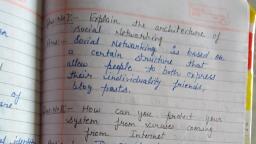 Que. No I:- Explain the architecture of
Social Networking
Ans:- Social Networking is based on
a certain structure that
allow people to both express
their individuality friends,
blog posts.
Que. No II:- How can you protect your
System from viruses coming
from Internet
of